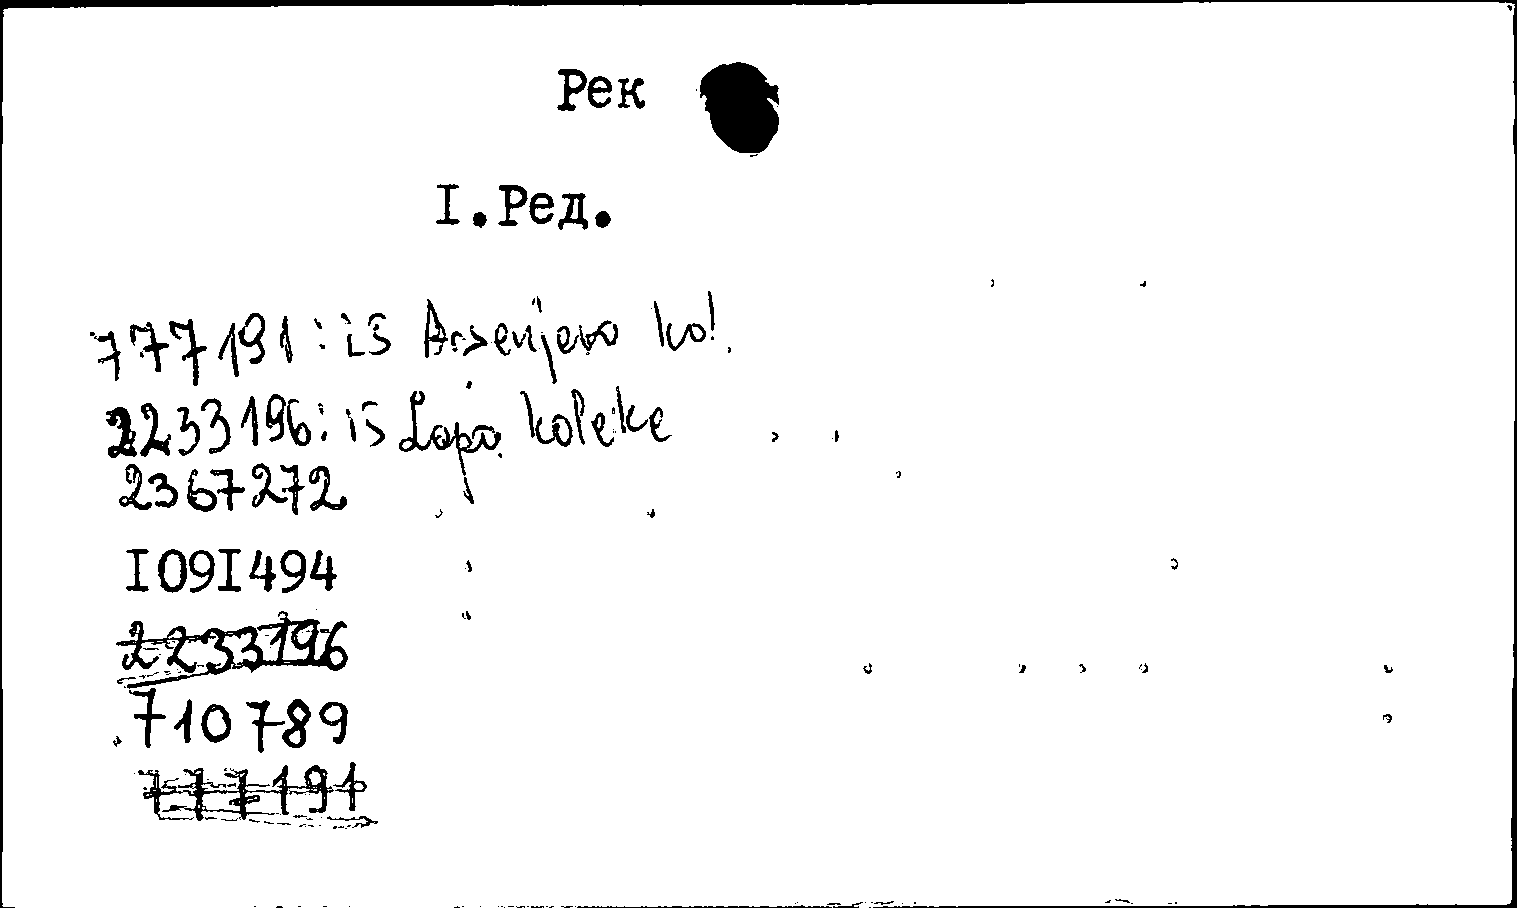 Рек
I.Ред.
777191: iš Arsenjevo kol.
2233196: iš Lopo kolekc
2367272
I09I494
2233196
710789
777191